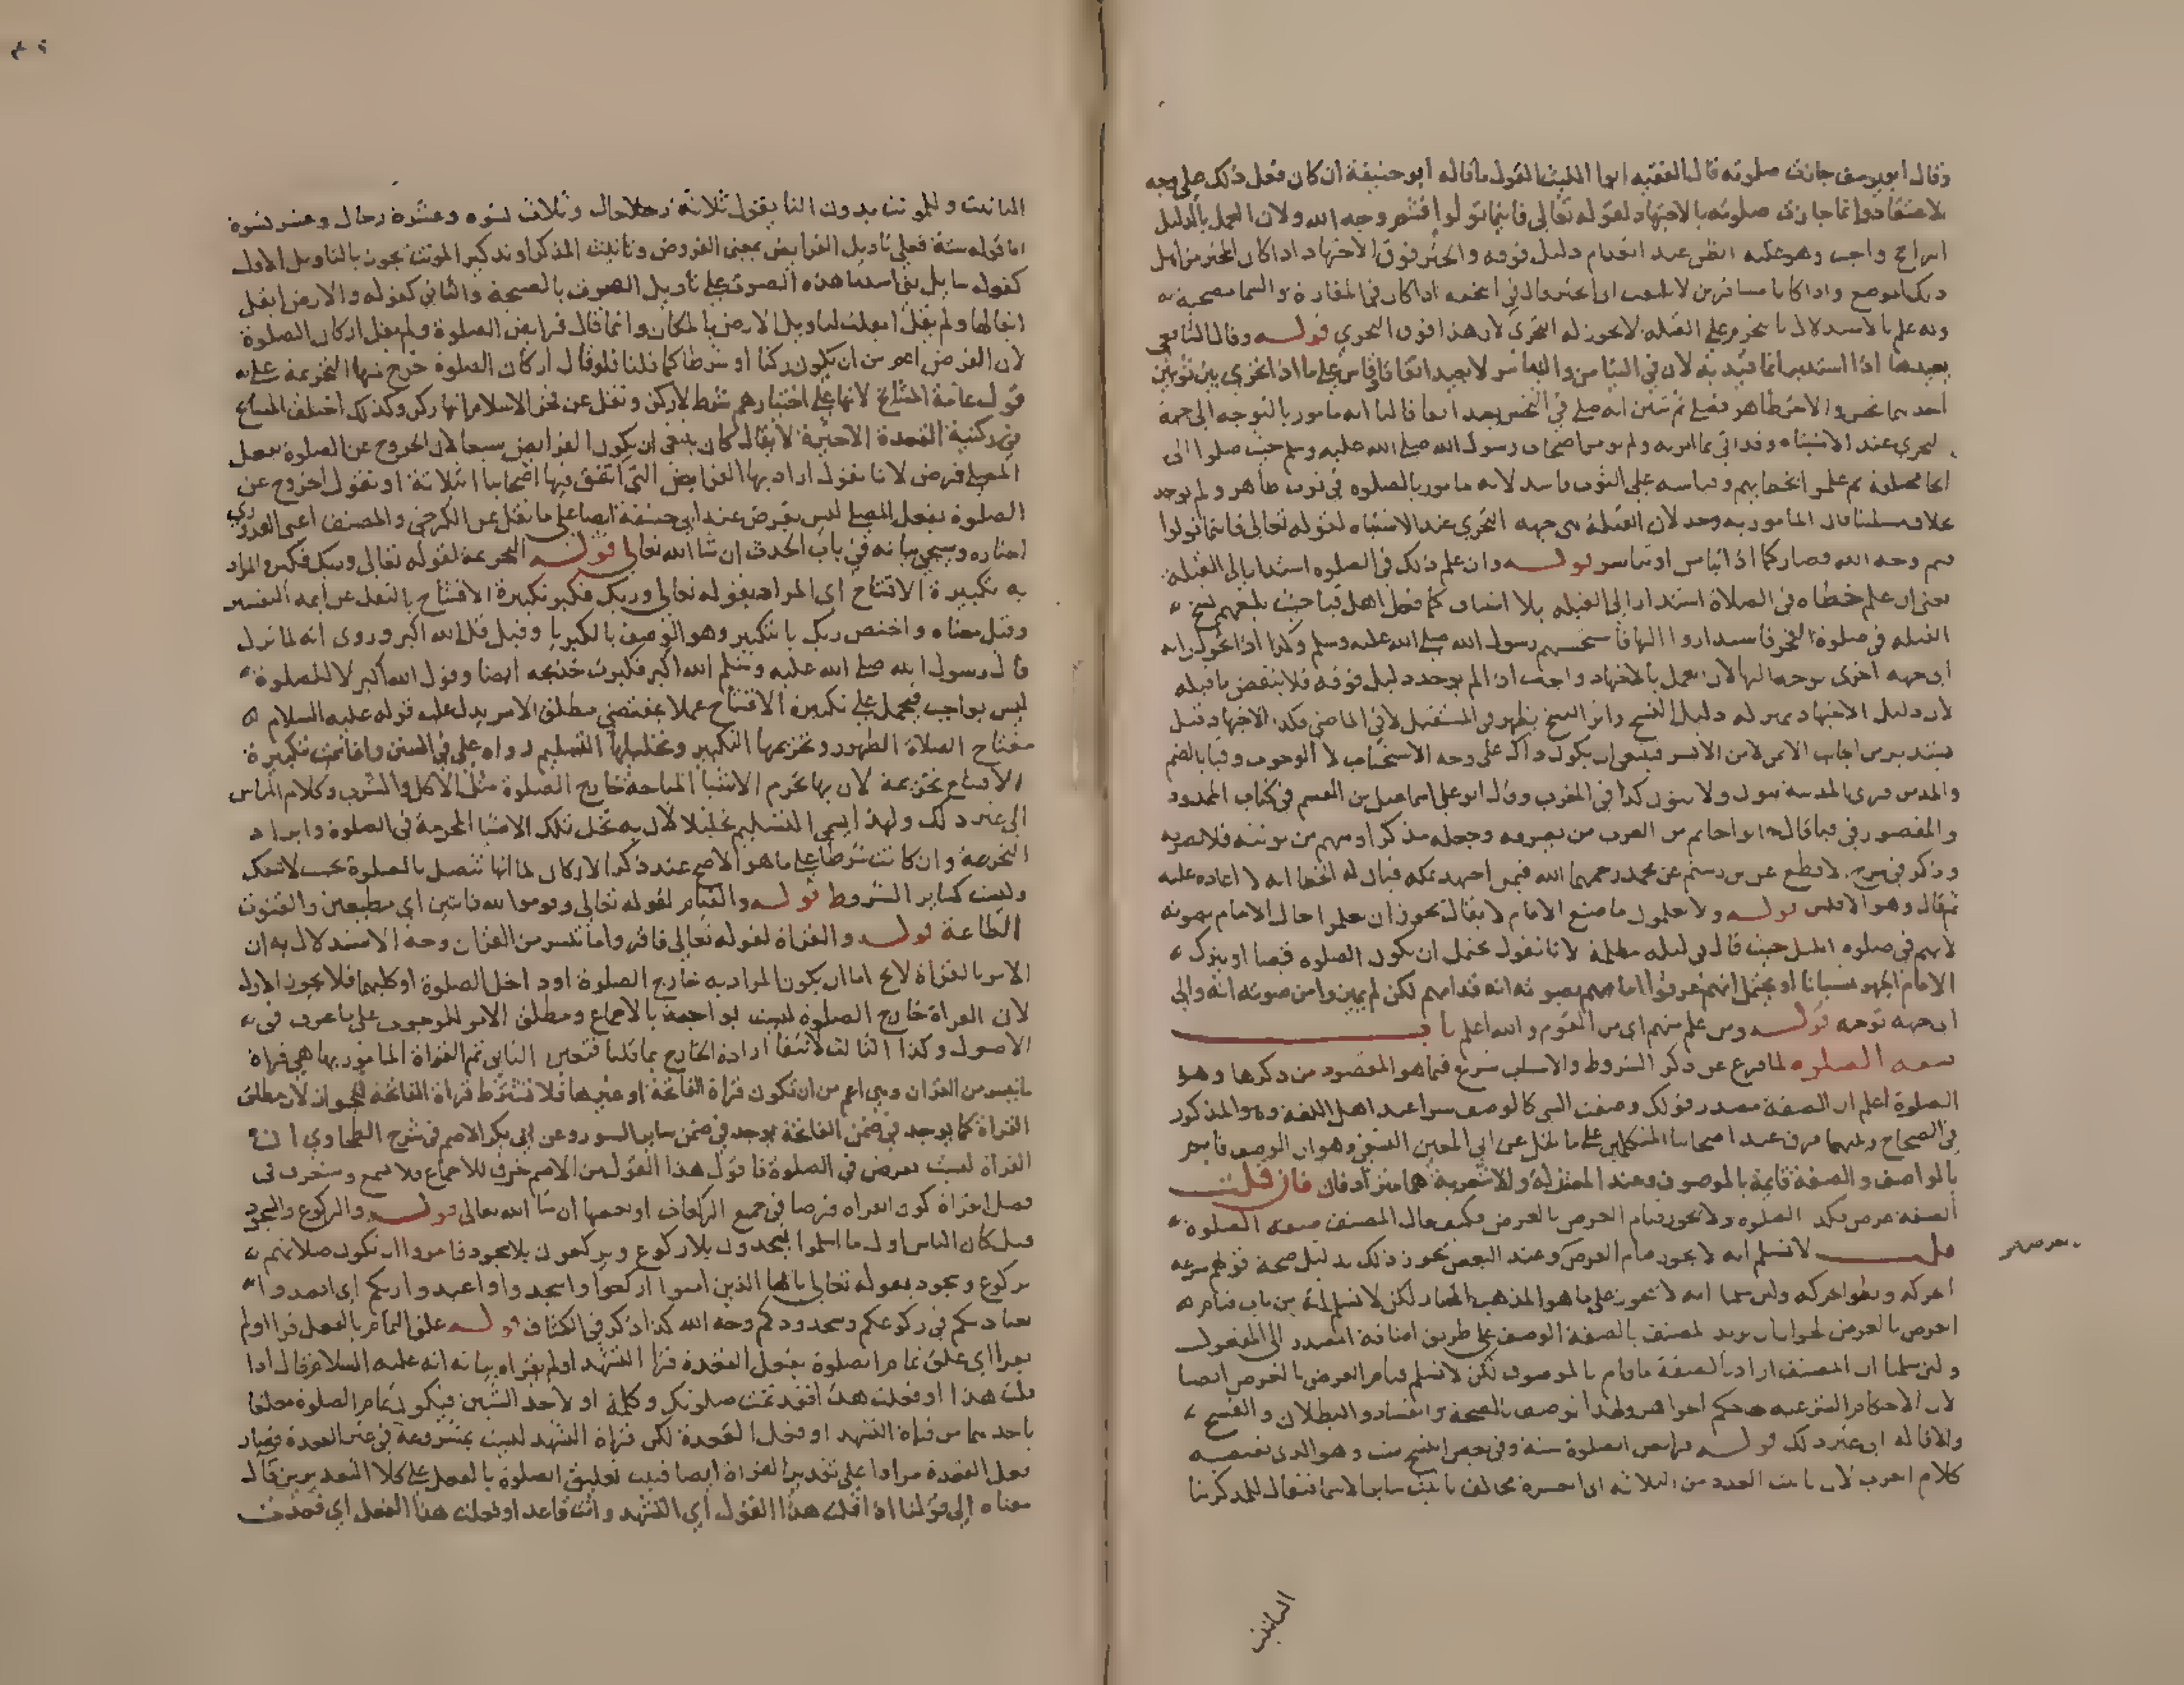 وقال ابو يوسف جازت صلوته قال الفقيه ابوا الليث القول ما قاله ابو حنيفة ان كان فعل ذلك على وجه
بلا اعتقادوا انما جازت صلوته بالاجتهاد لقوله تعالى فاينما تولوا فثم وجه الله ولان العمل بالدليل
الراجح واجب وهو غلبة الظن عند انعدام دليل فوقه والخبر فوق الاجتهاد اذا كان المخبر من اهل
ذلك الموضع واذا كانا مسافرين لا يلتفت الى اخبرهما لانهما في المفازة والسما مصحية
وله علم بالاستدلال بالنجوم على القبلة لا يجوز له التحرى لان هذا فوق التحرى قوله وقال الشافعى
يعيدها اذا استدبر انما قيد به لان في التيامن والتياسر لا يعيد اتفاقا وقاس على ما اذا تحرى بين ثوبين
احدهما نجس والاخر طاهر فصلى ثم تبين انه صلى في النجس يعيد اتفاقا قلنا انه مامور بالتوجه الى جهة
التحرى عند الاشتباه وقد اتى بما امر به ولم يومر اصحاب رسول الله صلى الله عليه وسلم حيث صلوا الى
انحا مختلفة ثم علموا بخطايهم وقياسه على الثوب فاسد لانه مامور بالصلوة في ثوب طاهر ولم يوجد
بخلاف مسئلتنا فان المامور به وجد لان القبلة هى جهة التحرى عند الاشتباه لقوله تعالى فاينما تولوا
فثم وجه الله فصار كما اذا تيامن او تياسر قوله وان علم ذلك في الصلوة استدار الى القبلة
يعنى ان علم خطاه في الصلاة استدار الى القبلة بلا استيناف كما فعل اهل قبا حيث بلغهم نسخ
القبلة في صلوة الفجر فاستداروا اليها فاستحسنهم رسول الله صلى الله عليه وسلم وكذا اذا تحول رايه
الى جهة اخرى توجه اليها لان العمل بالاجتهاد واجب اذا لم يوجد دليل فوقه فلا ينتقض ما قبله
لان دليل الاجتهاد بمنزلة دليل النسخ واثر النسخ يظهر في المستقبل لا في الماضى فكذا الاجتهاد قيل
يستدير من الجانب الايمن لا من الايسر فينبغى ان يكون ذاك على وجه الاستحباب لا الوجوب وقبا بالضم
والمد من قرى المدينة ينون ولا ينون كذا في المغرب وقال ابو على اسماعيل بن القسم في كتاب الممدود
والمقصور في قبا قال ابو احاتم من العرب من يصرفه ويجعله مذكرا ومنهم من يونثه فلا يصرفه
ثم قال وهو الاقيس قوله ولا يعلمون ما صنع الامام لا يقال يجوز ان علموا حال الامام بصوته
لانهم في صلوة الليل حيث قال في ليلة مظلمة لانا نقول يحتمل ان يكون الصلوة قضا او يترك
الامام الجهر نسيانا او يحتمل انهم عرفوا امامهم بصوته انه قدامهم لكن لم يميزوا من صوته انه والى
اى جهة توجه قوله ومن علم منهم اى من القوم والله اعلم باب
صفة الصلوة لما فرغ عن ذكر الشروط والاسباب شرع فيما هو المقصود من ذكرها وهو
الصلوة اعلم ان الصفة مصدر قولك وصفت الشى كالوصف سوا عند اهل اللغة وهو المذكور
في الصحاح وبينهما فرق عند اصحابنا المتكلمين على ما نقل عن ابي المعين النسفى وهو ان الوصف قايم
بالواصف والصفة قايمة بالموصوف وعند المعتزلة والاشعرية هما مترادفان فان قلت
الصفة عرض وكذا الصلوة ولا يجوز قيام العرض بالعرض فكيف قال المصنف صفة الصلوة
قلت لا نسلم انه لا يجوز قيام العرض وعند البعض يجوز ذلك بدليل صحة قولهم سرعة
الحركة وبطو الحركة ولين سلمنا انه لا يجوز على ما هو المذهب المختار لكن لا نسلم انه من باب قيام
العرض بالعرض لجواز ان يريد المصنف بالصفة الوصف على طريق اضافة المصدر الى المفعول
ولين سلمنا ان المصنف اراد بالصفة ما قام بالموصوف لكن لا نسلم قيام العرض بالعرض ايضا
لان الاحكام الشرعية حكم الجواهر ولهذا توصف بالصحة والفساد والبطلان والفسخ
والاقالة الى غير ذلك قوله فرايض الصلوة ستة وفي بعض النسخ ست وهو الذى تقتضيه
كلام العرب لان تانيث العدد من الثلاثة الى العشرة مخالف تانيث ساير الاسما فتقال للمذكر بتا
التانيث
التانيث وللمونث بدون التا يقول ثلاثة رجال وثلاث نسوه وعشرة رجال وعشر نسوة
اما قوله ستة فعلى تاويل الفرايض بمعنى الفروض وتانيث المذكر او تذكير المونث يجوز بالتاويل الاول
كقوله سايل بنى اسد ما هذه الصوت على تاويل الصوت بالصيحة والثاني كقوله والارض ابقل
ابقالها ولم يقل ابقلت لتاويل الارض بالمكان وانما قال فرايض الصلوة ولم يقل اركان الصلوة
لان الفرض اعم من ان يكون ركنا او شرطا كما قلنا فلو قال اركان الصلوة خرج منها التحريمة عليه
قول عامة المشايخ لانها على اختيارهم شرط لا ركن ونقل عن فخر الاسلام انها ركن وكذلك اختلف المشايخ
في ركنية القعدة الاخيرة لا يقال كان ينبغى ان يكون الفرايض سبعا لان الخروج عن الصلوة بفعل
المصلى فرض لانا نقول اراد بها الفرايض التى اتفق فيها اصحابنا الثلاثة او نقول الخروج عن
الصلوة بفعل المصلى ليس بفرض عند ابي حنيفة ايضا على ما نقل عن الكرخى والمصنف اعنى القدورى
اختاره ويجى بيانه في باب الحدث ان شا الله تعالى قوله التحريمة لقوله تعالى وربك فكبر والمراد
به تكبيرة الافتتاح اى المراد بقوله تعالى وربك فكبر تكبيرة الافتتاح بالنقل عن ايمة التفسير
وقيل معناه واختص ربك بالتكبير وهو الوصف بالكبريا وقيل قل الله اكبر وروى انه لما نزل
قال رسول الله صلى الله عليه وسلم الله اكبر فكبرت خديجه ايضا وقول الله اكبر لا للصلوة
ليس بواجب فيحمل على تكبيرة الافتتاح عملا بمقتضى مطلق الامر يدل عليه قوله عليه السلام
مفتاح الصلاة الطهور وتحريمها التكبير وتحليلها التسليم رواه على في السنن وانما سميت تكبيرة
الافتتاح تحريمة لان بها تحرم الاشيا المباحة خارج الصلوة مثل الاكل والشرب وكلام الناس
الى غير ذلك ولهذا يسمى التسليم تحليلا لان به تحل تلك الاشيا المحرمة في الصلوة وايراد
التحريمة وان كانت شرطا على ما هو الاصح عند ذكر الاركان لما انها تتصل بالصلوة بحيث لا تنفك
وليست كساير الشروط قوله والقيام لقوله تعالى وقوموا لله قانتين اى مطيعين والقنوت
الطاعة قوله والقراة لقوله تعالى فاقروا ما تيسر من القران وجه الاستدلال به ان
الامر بالقراة لا يخ اما ان يكون المراد به خارج الصلوة او داخل الصلوة او كليهما فلا يجوز الاول
لان القراة خارج الصلوة ليست بواجبة بالاجماع ومطلق الامر للوجوب على ما عرف في
الاصول وكذا الثالث لانتفا ارادة الخارج بما قلنا فتعين الثانى ثم القراة المامور بها هى قراة
ما تيسر من القران وهى اعم من ان تكون قراة الفاتحة او غيرها فلا تشترط قراة الفاتحة للجواز لان مطلق
القراة كما يوجد في ضمن الفاتحة يوجد في ضمن ساير السور وعن ابي بكر الاصم في شرح الطحاوي ان
القراة ليست بفرض في الصلوة فاقول هذا القول من الاصم خرق للاجماع فلا يسمع وستعرف في
فصل القراة كون القراة فرضا في جميع الركعات او بعضها ان شا الله تعالى قوله والركوع والسجود
قيل كان الناس اول ما اسلموا يسجدون بلا ركوع ويركعون بلا سجود فامروا ان تكون صلاتهم
بركوع وسجود بقوله تعالى يا ايها الذين امنوا اركعوا واسجدوا واعبدوا ربكم اى اقصدوا
بعبادتكم في ركوعكم وسجودكم وجه الله كذا ذكر في الكشاف قوله علق التمام بالفعل قرا او لم
يقرا اى علق تمام الصلوة بفعل القعدة قرا التشهد او لم يقراه بيانه انه عليه السلام قال اذا
قلت هذا او فعلت هذا فقد تمت صلوتك وكلمة او لاحد الشيين فيكون تمام الصلوة معلقا
باحدهما من قراة التشهد او فعل القعدة لكن قراة التشهد ليست بمشروعة في غير القعدة فصار
فعل القعدة مرادا على تقدير القراة ايضا فثبت تعليق الصلوة بالفعل على كلا التقديرين قال
معناه الى قولنا اذا قلت هذا القول اى التشهد وانت قاعد او فعلت هذا الفعل اى قعدت